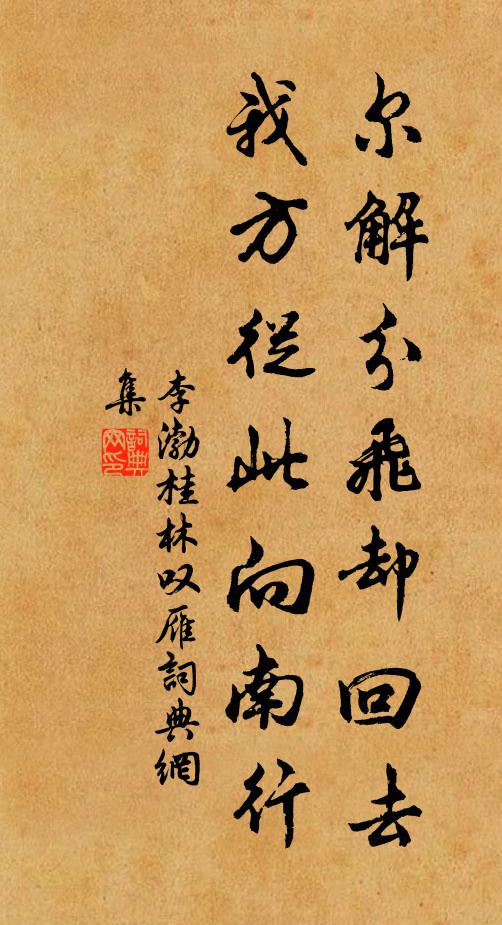 尔解分飞却回去
我方從此向南行
李渤桂林叹雁詞典網
集
詞典
网印